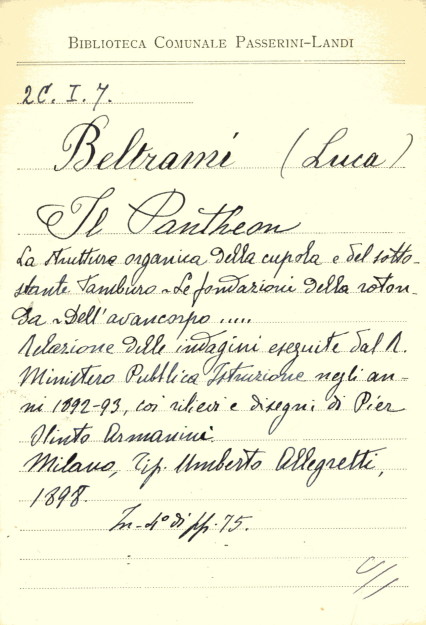 BIBLIOTECA COMUNALE PASSERINI-LANDI
2C. I. 7.
Beltrami (Luca)
Il Pantheon
La struttura organica della cupola e del sotto-
stante Tamburo - Le fondazioni della roton-
da - Dell'avancorpo .....
Relazione delle indagini eseguite dal R.
Ministero Pubblica Istruzione negli an-
ni 1892-93, coi rilievi e disegni di Pier
Olinto Armanini.
Milano, Tip. Umberto Allegretti,
1898.
In-4° di pp. 75.